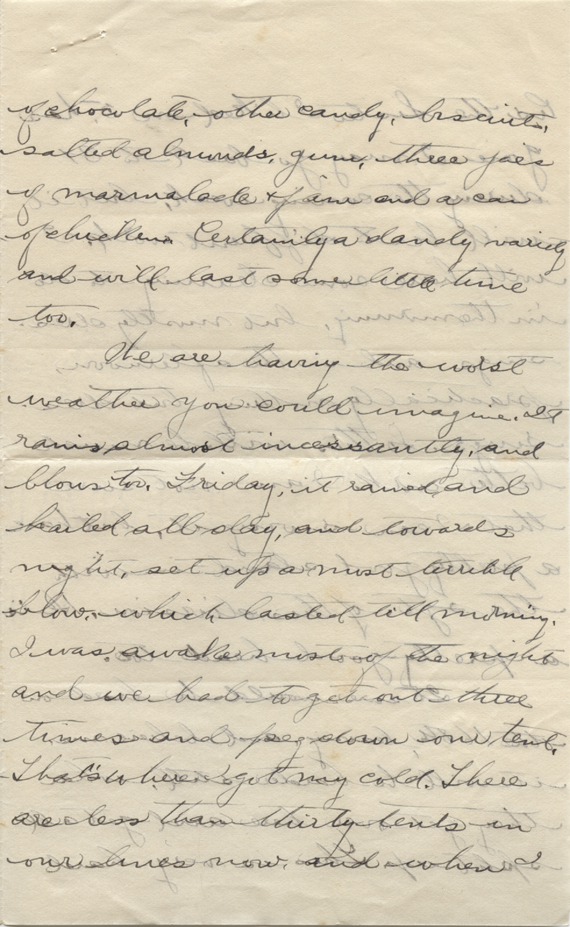 of chocolate, other candy, biscuits,
salted almonds, gum, three jars
of marmalade & jam and a can
of chicken. Certainly a dandy variety
and will last some little time
too.
We are having the worst
weather you could imagine. It
rains almost incessantly, and
blows too. Friday, it rained and
hailed all day, and towards
night, set up a most terrible
blow, which lasted till morning.
I was awake most of the night
and we had to get out three
times and peg down our tent.
That's where I got my cold. There
are less than thirty tents in
our lines now, and when I